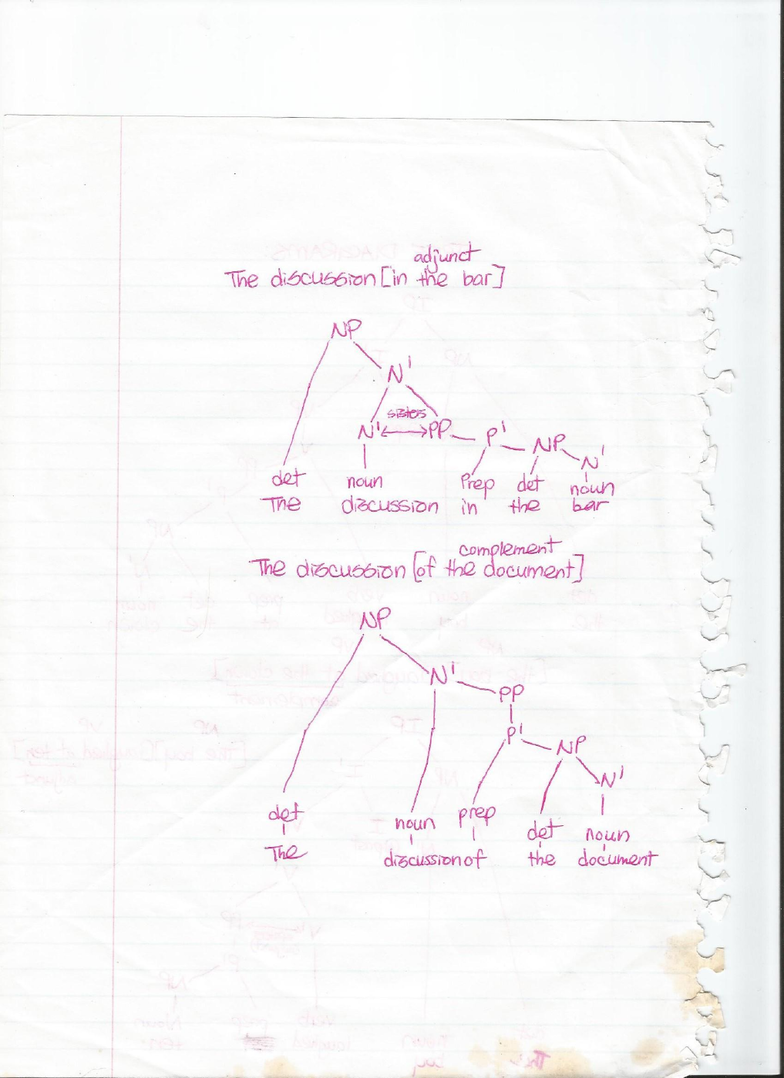 adjunct
The discussion [in the bar]
NP
N'
sisters
N' PP P' NP N'
det noun Prep det noun
The discussion in the bar
complement
The discussion [of the document]
NP
N' PP
P' NP
N'
det noun prep det noun
The discussion of the document